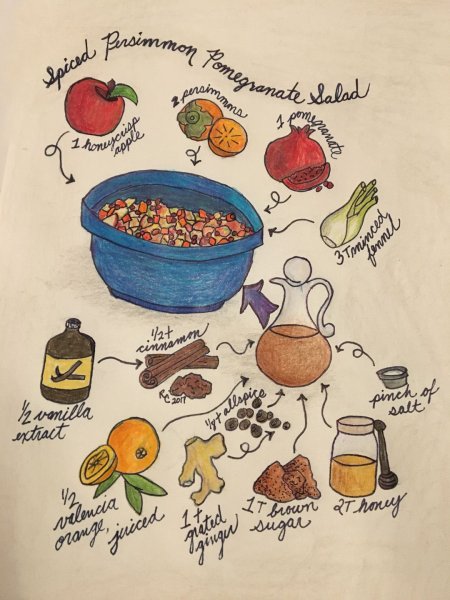 Spiced Persimmon Pomegranate Salad
1 honeycrisp
apple
2 persimmons
1 pomegranate
3T minced
fennel
1/2 t
cinnamon
RC
2017
1/2 vanilla
extract
1/8 t allspice
pinch of
salt
1/2
valencia
orange, juiced
1 t
grated
ginger
1T brown
sugar
2T honey